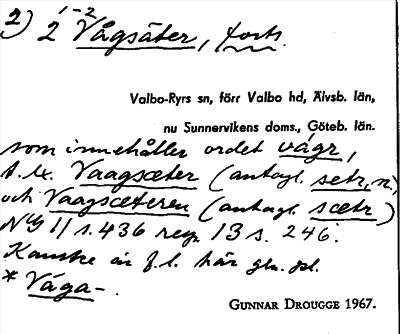 2) 2 1-2 Vågsäter, forts.
Valbo-Ryrs sn, förr Valbo hd, Älvsb. län,
nu Sunnervikens doms., Göteb. län.
som innehåller ordet vágr,
t.ex. Vaagsæter (antagl. setr, n.)
och Vaagsæteren (antagl. sætr)
NG II s. 436 resp. 13 s. 246.
Kanske är f.l. här gen. pl.
* Våga-.
GUNNAR DROUGGE 1967.